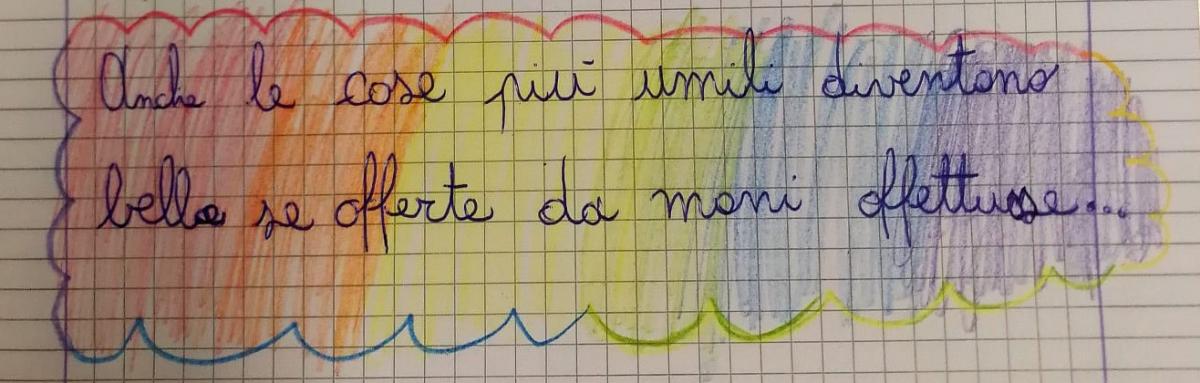 Anche le cose più umili diventano
belle se offerte da mani affettuose...